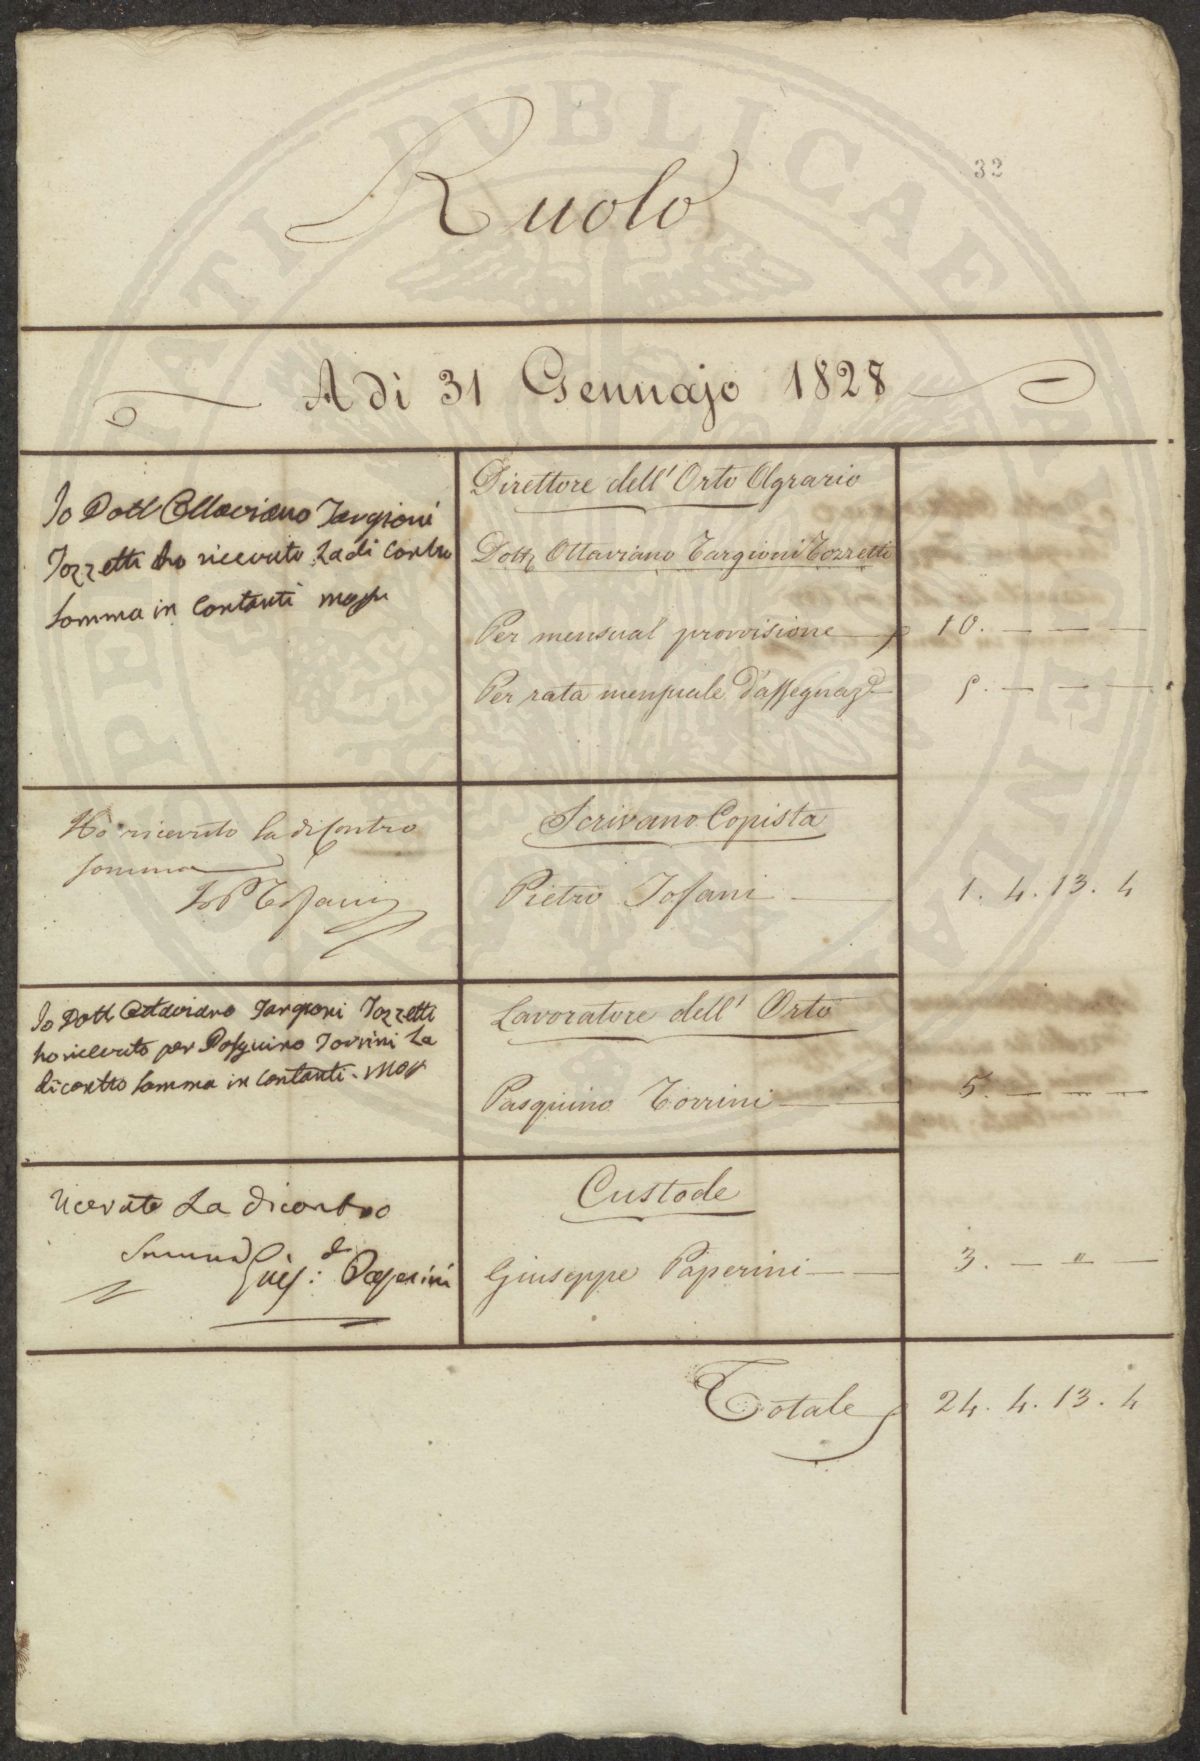 PVBLICAE
32
Ruolo
A dì 31 Gennajo 1828
Io Dott Ottaviano Targioni
Tozzetti ho ricevuto La di Contro
Somma in Contanti
Direttore dell' Orto Agrario
Dott Ottaviano Targioni Tozzetti
Per mensual provvisione 10. — — —
Per rata mensuale d'assegnaz.e 5. — — —
Ho ricevuto la di contro
somma
Io P Tofani
Scrivano Copista
Pietro Tofani 1. 4. 13. 4
Io Dott Ottaviano Targioni Tozzetti
ho ricevuto per Pasquino Torrini La
di contro Somma in Contanti
Lavoratore dell' Orto
Pasquino Torrini 5. — — —
Ricevuto La di contro
Somma
Paperini
Custode
Giuseppe Paperini 3. — " —
Totale 24. 4. 13. 4